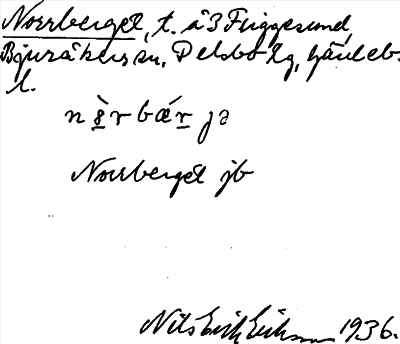 Norrberget, t. å 3 Friggesund,
Bjuråkers sn, Delsbo tg, Gävleb.
l.
nòrbǽr jə
Norrberget jb
Nils Erik Eriksson 1936.